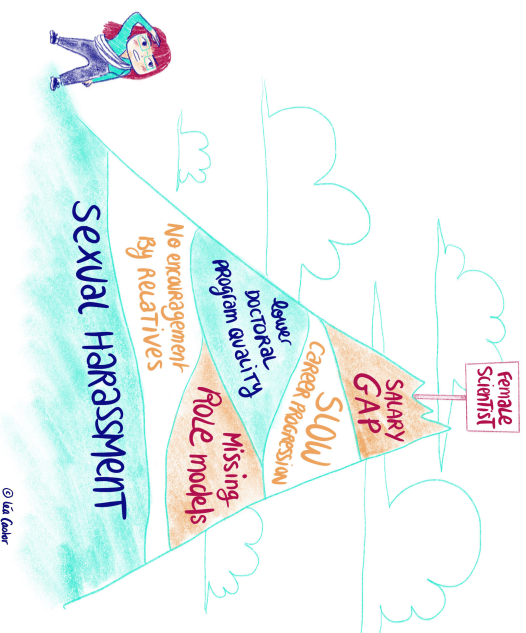 Female
Scientist
SALARY
GAP
SLOW
CAREER PROGRESSION
lower
DOCTORAL
PROGRAM QUALITY
Missing
ROLE models
No encouragement
By RELATIVES
SEXUAL HARASSMENT